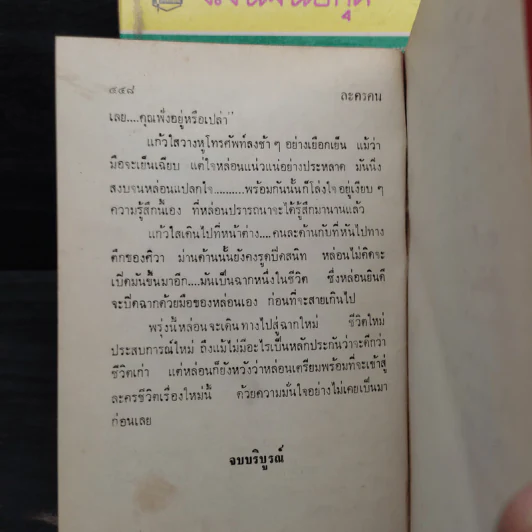 ๕๔๘ ละครคน
เลย....คุณฟังอยู่หรือเปล่า"
แก้วใสวางหูโทรศัพท์ลงช้า ๆ อย่างเยือกเย็น แม้ว่า
มือจะเย็นเฉียบ แต่ใจหล่อนแน่วแน่อย่างประหลาด มันนิ่ง
สงบจนหล่อนแปลกใจ..........พร้อมกันนั้นก็โล่งใจอยู่เงียบ ๆ
ความรู้สึกนี้เอง ที่หล่อนปรารถนาจะได้รู้สึกมานานแล้ว
แก้วใสเดินไปที่หน้าต่าง....คนละด้านกับที่หันไปทาง
ตึกของศิวา ม่านด้านนั้นยังคงรูดปิดสนิท หล่อนไม่คิดจะ
เปิดมันขึ้นมาอีก....มันเป็นฉากหนึ่งในชีวิต ซึ่งหล่อนยินดี
จะปิดฉากด้วยมือของหล่อนเอง ก่อนที่จะสายเกินไป
พรุ่งนี้หล่อนจะเดินทางไปสู่ฉากใหม่ ชีวิตใหม่
ประสบการณ์ใหม่ ถึงแม้ไม่มีอะไรเป็นหลักประกันว่าจะดีกว่า
ชีวิตเก่า แต่หล่อนก็ยังหวังว่าหล่อนเตรียมพร้อมที่จะเข้าสู่
ละครชีวิตเรื่องใหม่นี้ ด้วยความมั่นใจอย่างไม่เคยเป็นมา
ก่อนเลย
จบบริบูรณ์